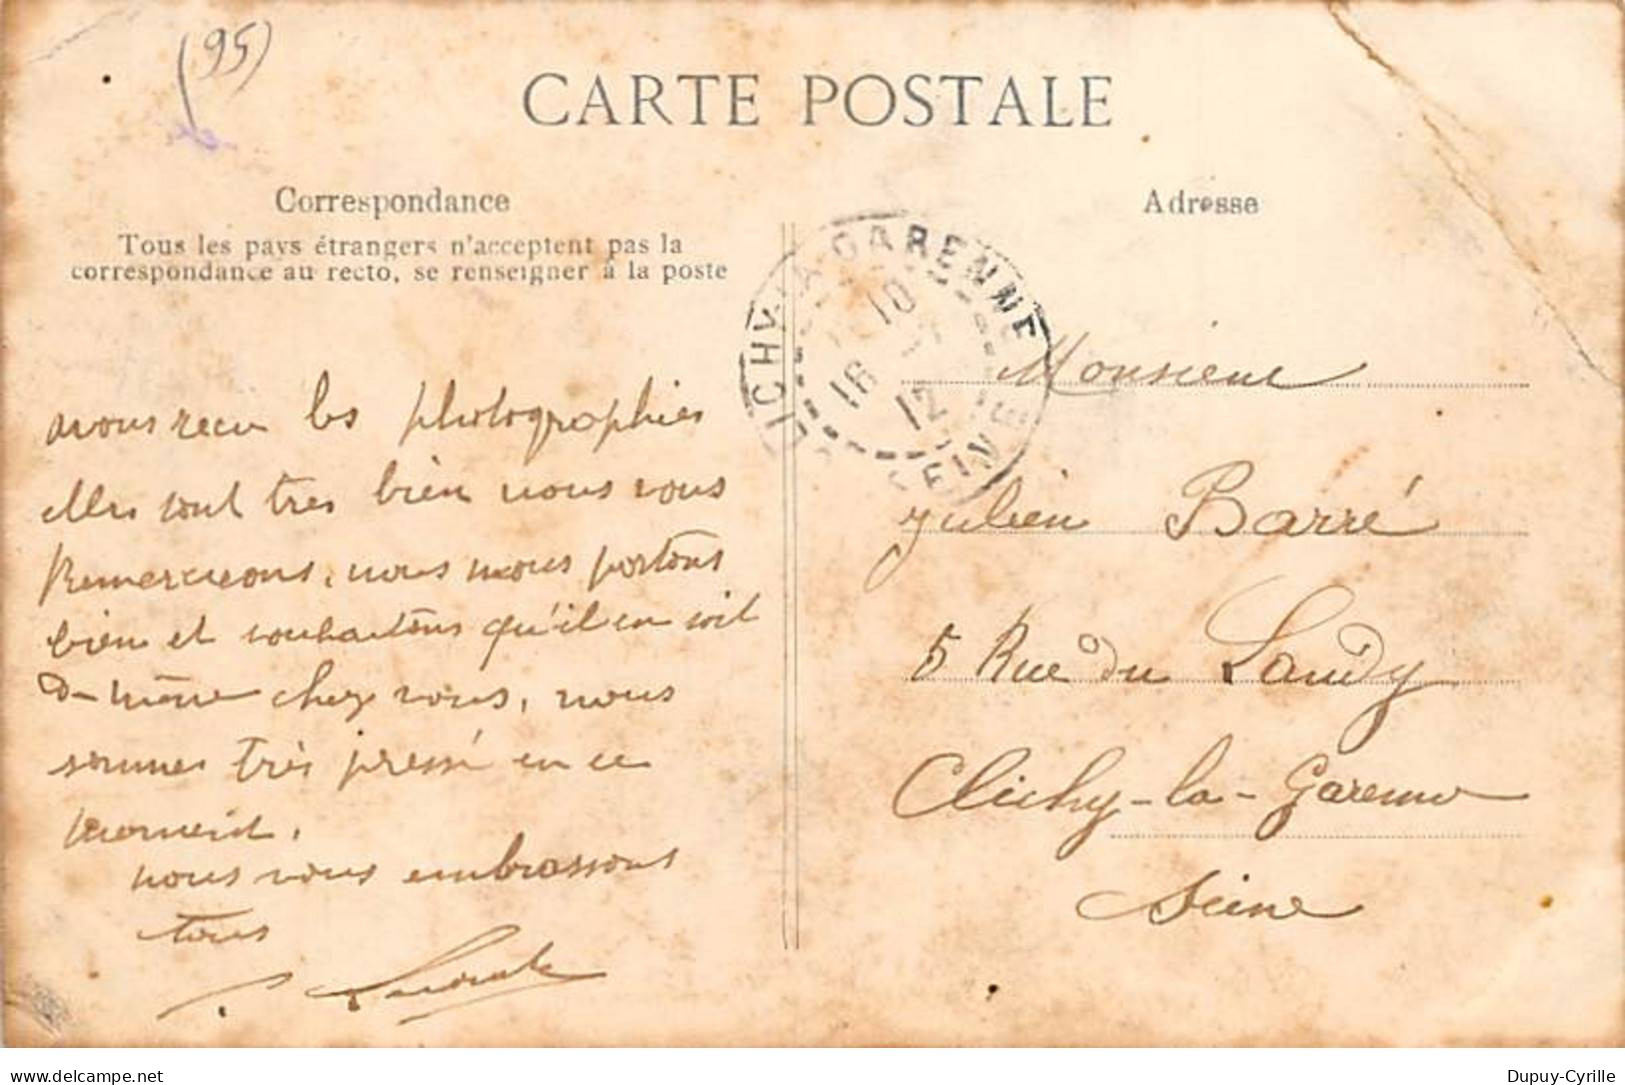 (95)
CARTE POSTALE
Correspondance
Tous les pays étrangers n'acceptent pas la
correspondance au recto, se renseigner à la poste
Adresse
CLICHY-LA-GARENNE
10
16 -7
12
SEINE
avons recu les photographies
elles sont tres bien nous vous
Remercieons, nous nous portons
bien et souhaitons qu'il en soit
de même chez vous, nous
sommes très pressé en ce
moment.
nous vous embrassons
tous
Monsieur
Julien Barré
5 Rue du Landy
Clichy-la-Garenne
Seine
delcampe.net
Dupuy-Cyrille